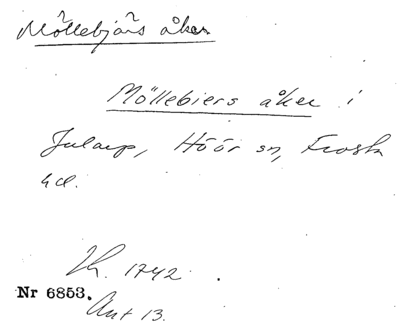 Möllebjärs åker
Möllebiers åker i
Jularp, Höör sn, Frosta
hd.
Lk. 1742.
Nr 6853.
Akt 13.